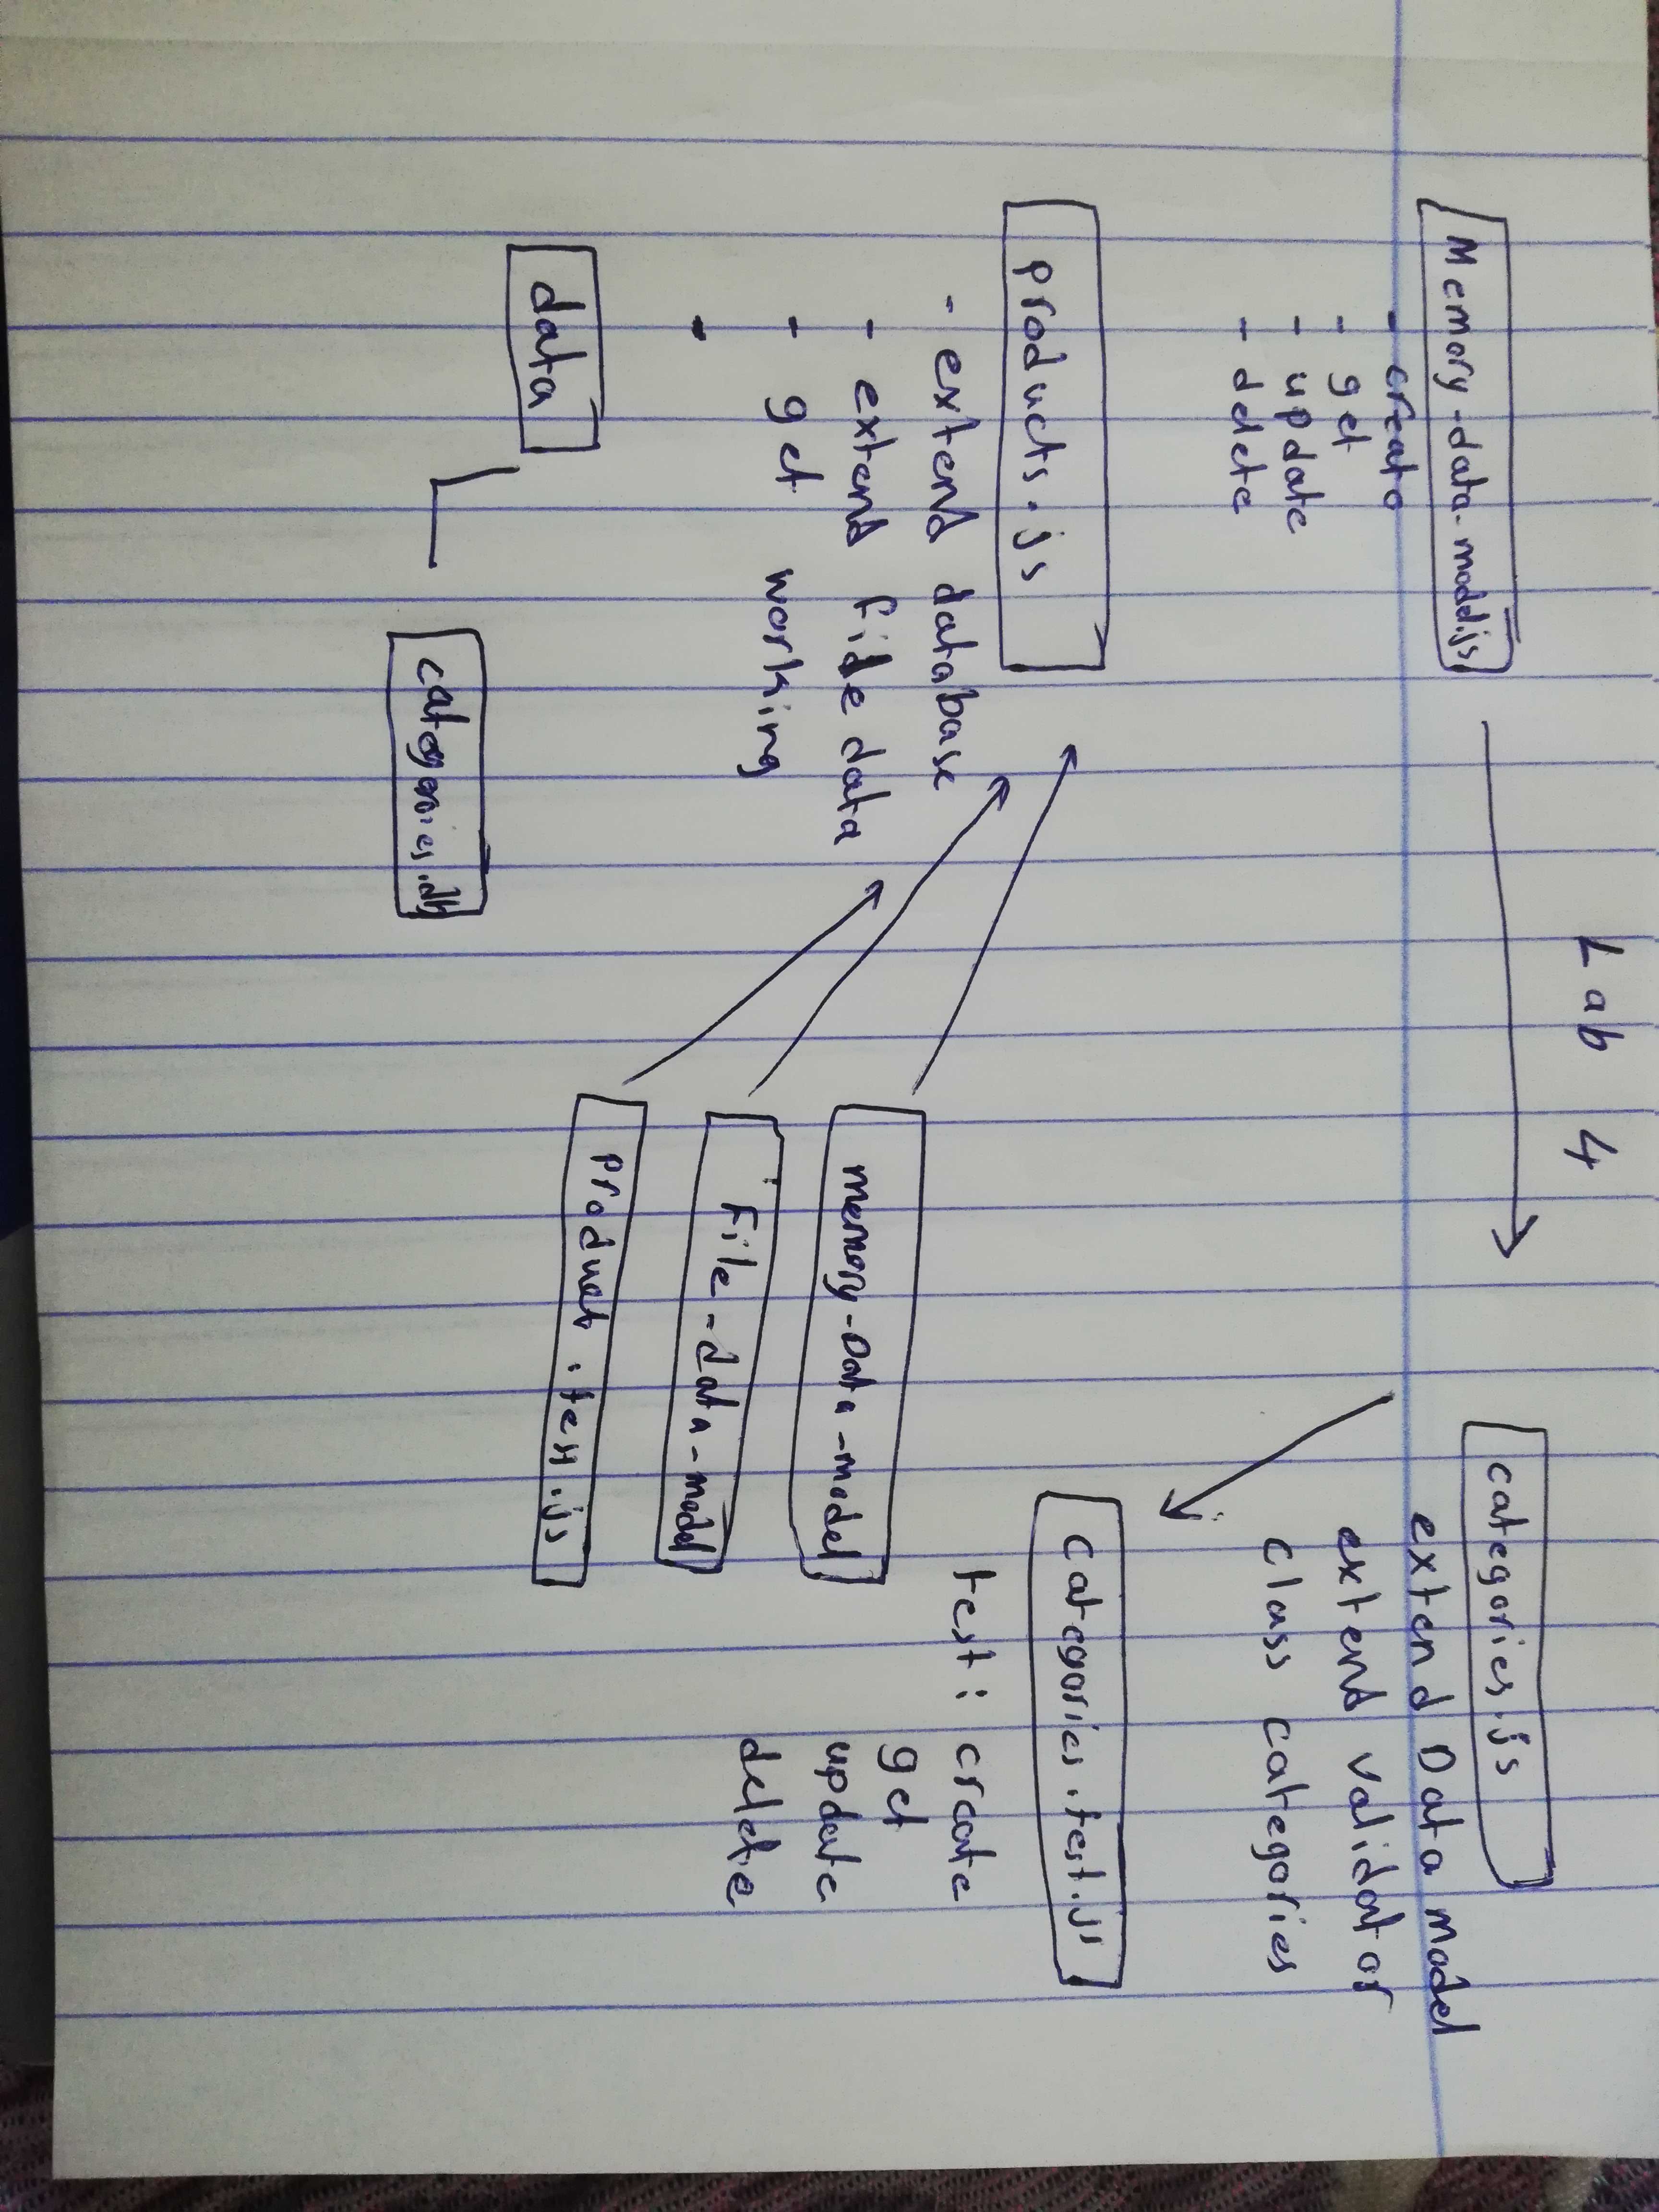 Lab 4
Memory-data-model.js
- create
- get
- update
- delete
categories.js
extend Data model
extend validator
class categories
categories.test.js
test: create
get
update
delete
products.js
- extend database
- extend file data
- get working
-
memory-Data-model
File-data-model
product.test.js
data
categories.db